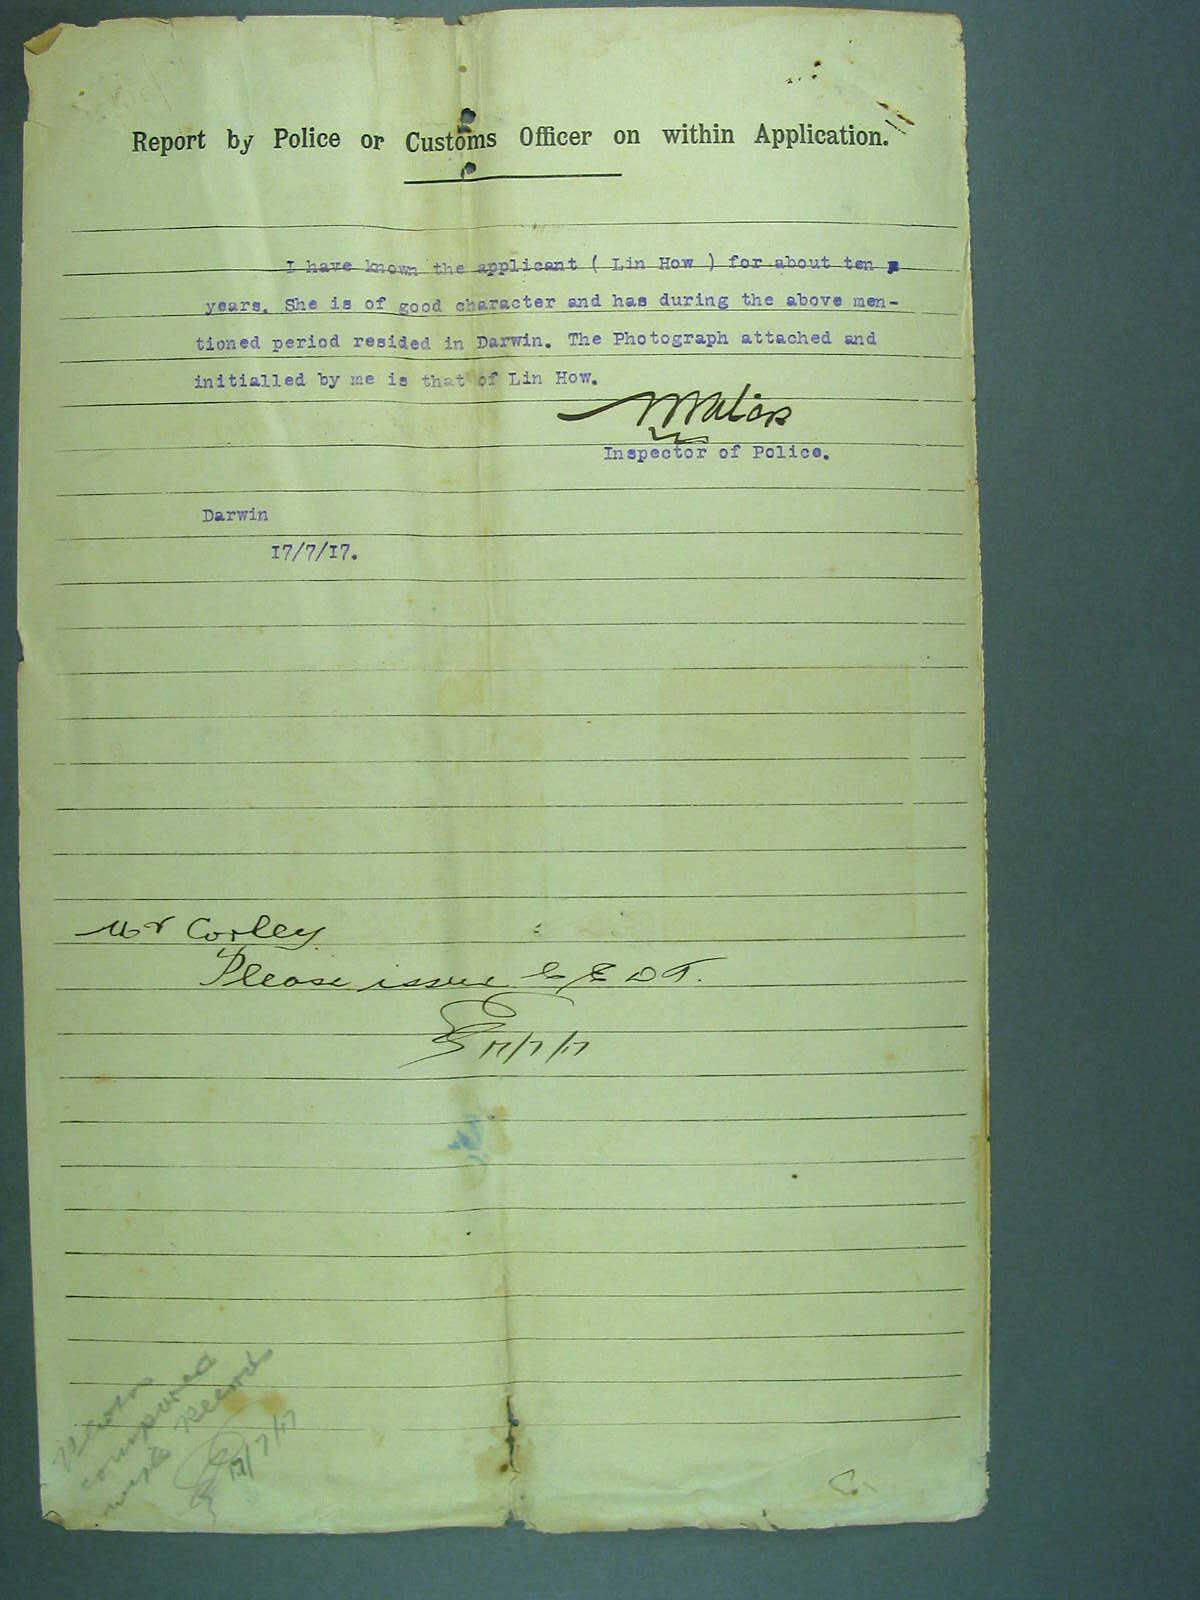 Report by Police or Customs Officer on within Application.
I have known the applicant ( Lin How ) for about ten
years. She is of good character and has during the above men-
tioned period resided in Darwin. The Photograph attached and
initialled by me is that of Lin How.
Inspector of Police.
Darwin
17/7/17.
Mr Corley
Please issue C E D T.
17/7/17
Photo
compared
with Record
17/7/17